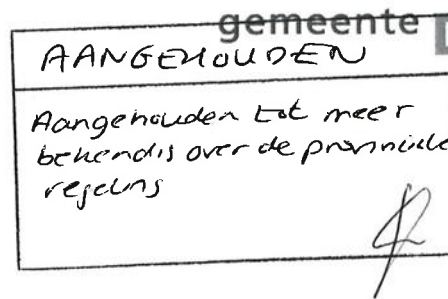 gemeente
AANGEHOUDEN
Aangehouden tot meer
bekend is over de provinciale
regeling